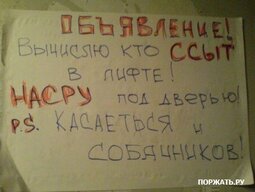 ОБЪЯВЛЕНИЕ!
Вычислю кто ССЫТ
в лифте!
НАСРУ под дверью!
P.S. КАСАЕТЬСЯ и
СОБАЧНИКОВ!
ПОРЖАТЬ.РУ